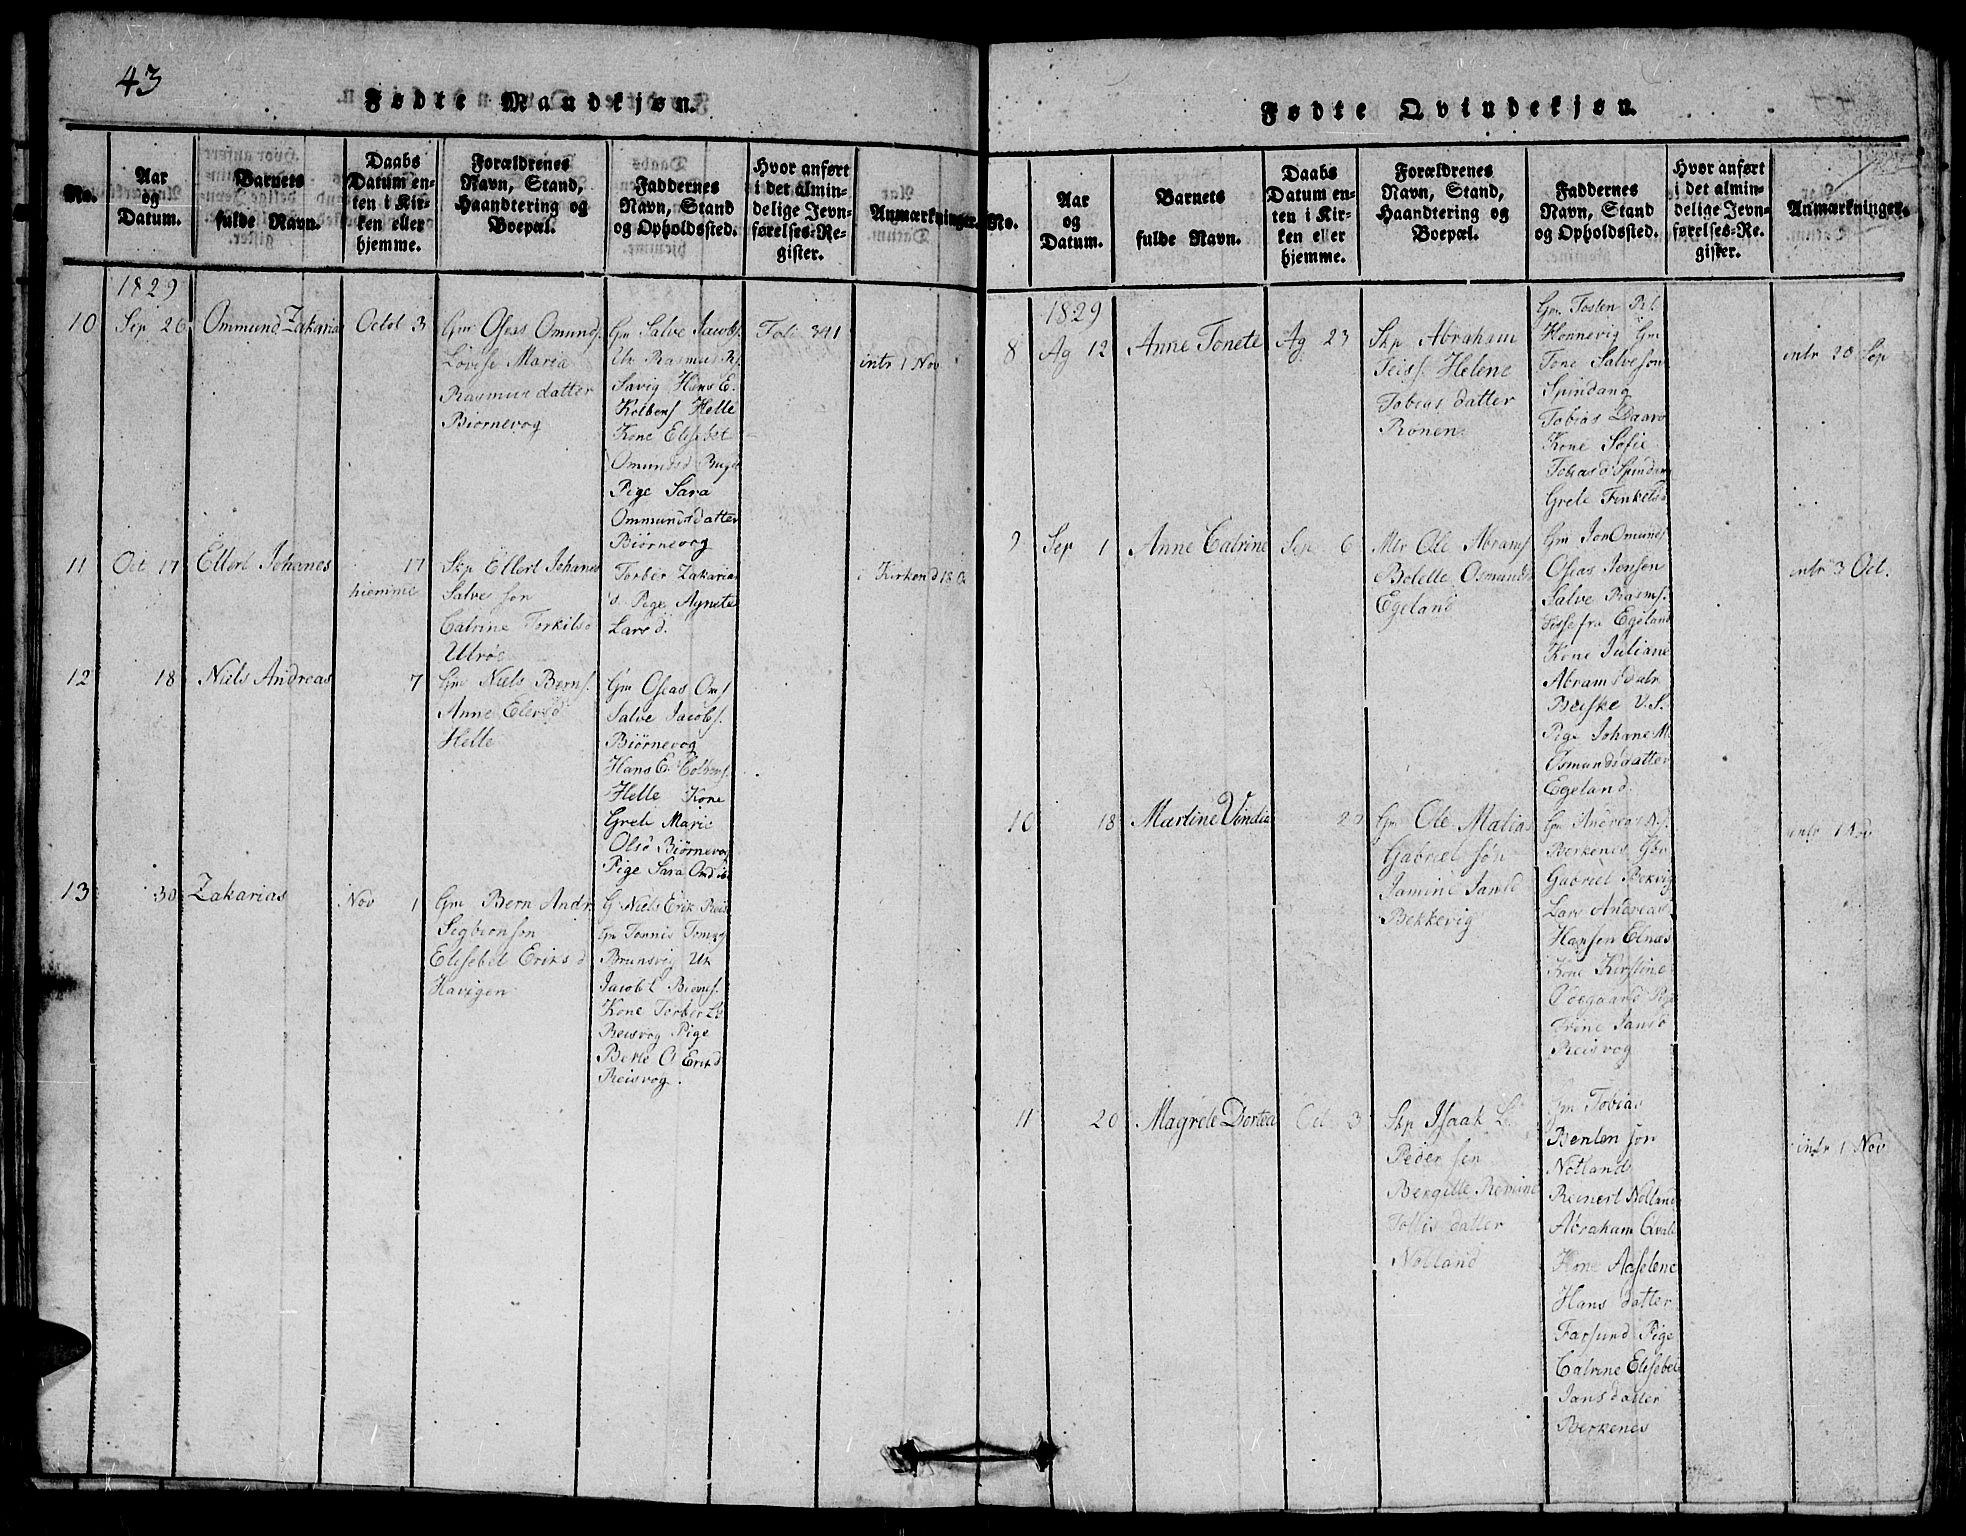 43
Fødte Mandkjøn.
No.
Aar
og
Datum.
Barnets
fulde Navn.
Daabs
Datum en-
ten i Kir-
ken eller
hjemme.
Forældrenes
Navn, Stand,
Haandtering og
Boepæl.
Faddernes
Navn, Stand
og Opholdssted.
Hvor anført
i det almin-
delige Jevn-
førelses-Re-
gister.
Anmærkninger.
1829
10
Sep 26
Ommund Zakarias
Octob 3
Gm Oseas Omunds.
Lovise Maria
Rasmus datter
Biørnevog
Gm Salve Jacobs.
Rasmus
Savig Hans E.
Kolbens Helle
Kone Elisebet
Omundsd
Pige Sara
Ommundsdatter
Biørnevog
Foli 341
intr 1 Nov
11
Oct 17
Ellert Johanes
17
hiemme
Skp Ellert Johanes
Salve søn
Catrine Torkilsd
Ulrøe
Torber Zakarias
d. Pige Agnete
Larsd.
i Kirken d 18 Oc
12
18
Niels Andreas
7
Gm Niels Berns.
Anne Elersd
Helle
Gm Oseas Oms
Salve Jacobs.
Biørnevog
Hans E. Colbens.
Helle Kone
Grete Marie
Olsd Biørnevog
Pige Sara Omds
13
30
Zakarias
Nov 1
Gm Bern Andr
Segbiønsøn
Elisebet Eriks d
Havigen
G Niels Erik Reis
Gm Tønnis Tomas
Brunsvig Uk
Jacob L Biørns.
Kone Torber L
Reisvog Pige
Berte O Erikd
Reisvog.
Fødte Qvindekjøn.
No.
Aar
og
Datum.
Barnets
fulde Navn.
Daabs
Datum en-
ten i Kir-
ken eller
hjemme.
Forældrenes
Navn, Stand,
Haandtering og
Boepæl.
Faddernes
Navn, Stand
og Opholdssted.
Hvor anført
i det almin-
delige Jevn-
førelses-Re-
gister.
Anmærkninger.
1829
8
Ag 12
Anne Tonete
Ag 23
Skp Abraham
Teiss. Helene
Tobias datter
Rønen
Gm. Tosten
Honnevig Gm
Tone Salvesøn
Spindang
Tobias Daarv
Kone Sofie
Tobiasd Spindang
Grete Tinkelsd
intr 20 Sep
9
Sep 1
Anne Catrine
Sep 6
Mtr Ole Abrams
Bolette Osmunds
Egeland
Gm Jon Omunds
Oseas Jensen
Salve Rasms.
fra Egeland
Kone Juliane
Abrams datr
Beiske V.S.
Pige Johane M
Osmundsdatter
Egeland.
intr 3 Oct.
10
18
Martine Vendia
20
Gm Ole Matias
Gabriel søn
Jamine Jansd
Bekkevig
Gm Andreas N.
Berkenes Gbr
Gabriel Bekvig
Lars Andreas
Hansen Elnæs
Kone Kirstine
Ødegaard Pige
Trine Jansd
Reisvog
intr 1 Nov
11
20
Magrete Dortea
Oct 3
Skp Isaak L
Peder sen
Bergitte Remine
Tollis datter
Notland
Gm Tobias
Benten søn
Notland
Reinert Notland
Abraham Qvale
Kone Aaselene
Hans datter
Farsund Pige
Catrine Elisebet
Jans datter
Berkenes
intr 1 Nov